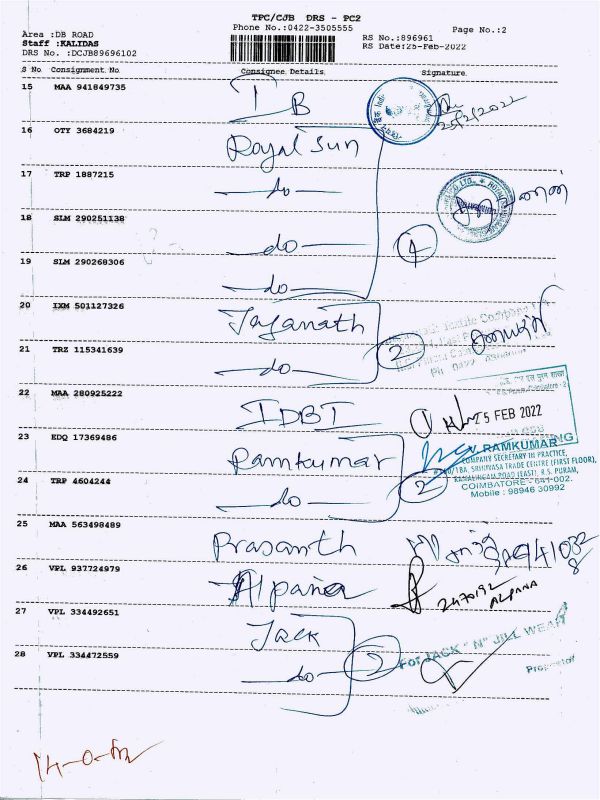 TPC/CJB DRS - PC2
Phone No.:0422-3505555
Page No.:2
Area :DB ROAD
Staff :KALIDAS
DRS No. :DCJB89696102
RS No.:896961
RS Date:25-Feb-2022
S No Consignment No Consignee Details Signature
15 MAA 941849735 I B 25/2/2022
16 OTY 3684219 Royal Sun
17 TRP 1887215 do
18 SLM 290251138 do
4
19 SLM 290268306 do
20 IXM 501127326 Jaganath
2
21 TRZ 115341639 do
22 MAA 280925222 IDBI
25 FEB 2022
23 EDQ 17369486 Ramkumar
RAMKUMAR
COMPANY SECRETARY IN PRACTICE,
SRINIVASA TRADE CENTRE (FIRST FLOOR),
RAMALINGAM ROAD (EAST), R.S. PURAM,
COIMBATORE - 641-002.
Mobile : 98946 30992
24 TRP 4604244 do
2
25 MAA 563498489 Prasanth
26 VPL 937724979 Alpana
2470192
ALPANA
27 VPL 334492651 Jack
For JACK "N" JILL WEAR
2
28 VPL 334472559 do